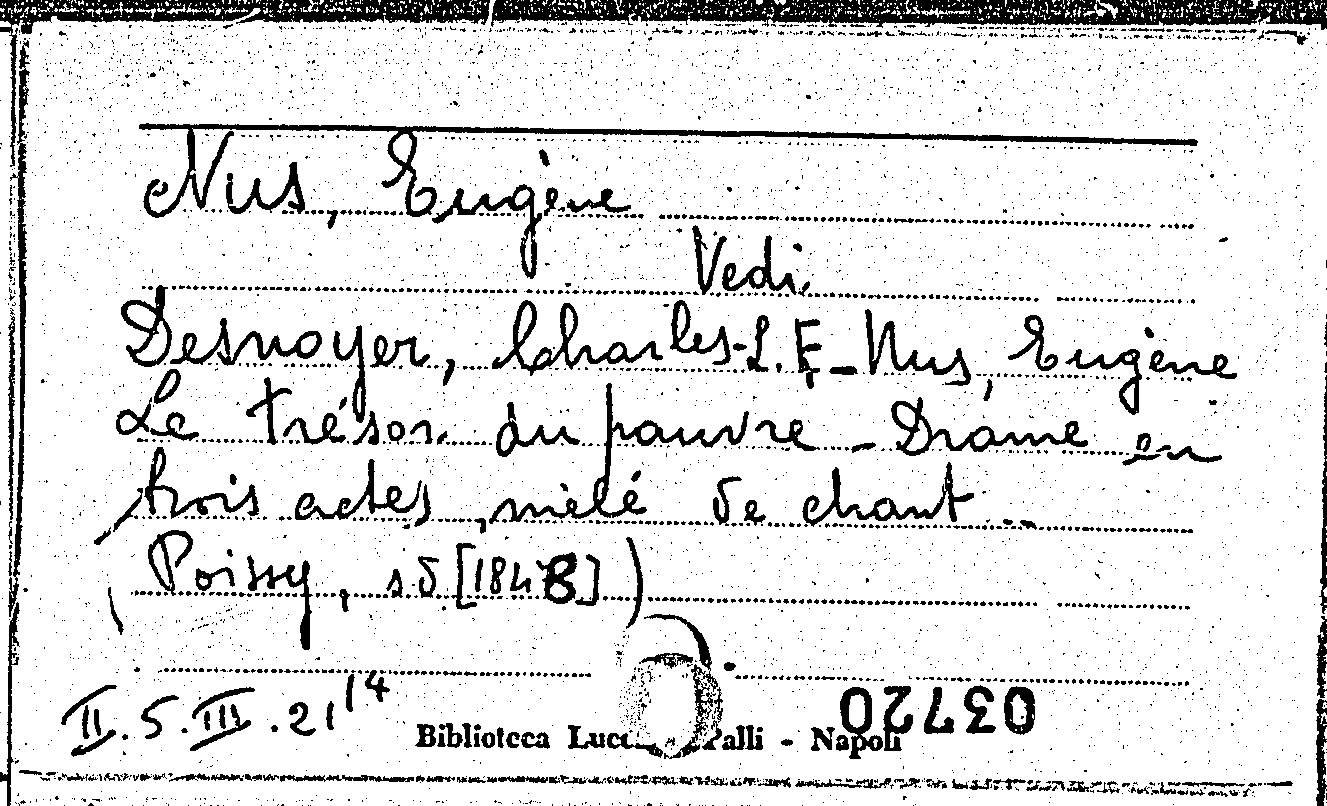 Nus, Eugène
Vedi.
Desnoyer, Charles-L. F. - Nus, Eugène
Le trésor du pauvre - Drame en
trois actes, mêlé de chant...
(Poissy, s d [1848])
II. 5. III. 21 14
03720
Biblioteca Palli - Napoli